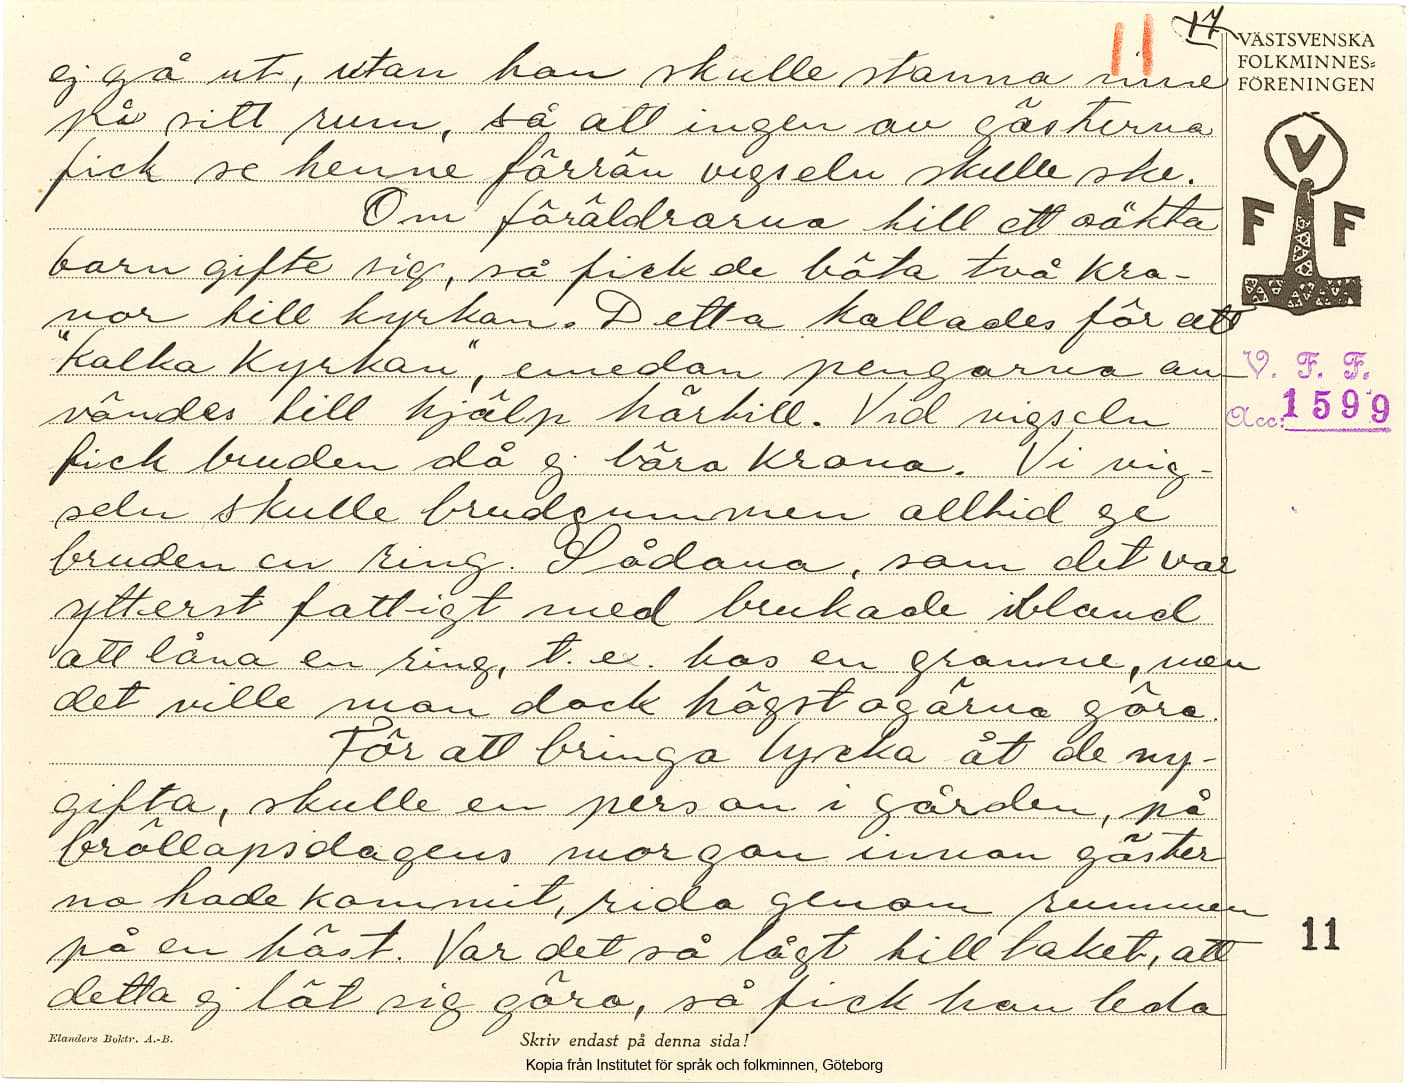 11 17
VÄSTSVENSKA
FOLKMINNES=
FÖRENINGEN
V
F F
V. F. F.
Acc: 1599
ej gå ut, utan hon skulle stanna inne
på sitt rum, så att ingen av gästerna
fick se henne förrän vigseln skulle ske.
Om föräldrarna till ett oäkta
barn gifte sig, så fick de böta två kro-
nor till kyrkan. Detta kallades för att
"kalka kyrkan", emedan pengarna an
vändes till hjälp härtill. Vid vigseln
fick bruden då ej bära krona. Vi vig-
seln skulle brudgummen alltid ge
bruden en ring. Sådana, som det var
ytterst fattigt med brukade ibland
att låna en ring, t. ex. hos en granne, men
det ville man dock högst ogärna göra.
För att bringa lycka åt de ny-
gifta, skulle en person i gården, på
bröllopsdagens morgon innan gäster
na hade kommit, rida genom rummen
på en häst. Var det så lågt till taket, att
detta ej lät sig göra, så fick han leda
11
Elanders Boktr. A.-B.
Skriv endast på denna sida!
Kopia från Institutet för språk och folkminnen, Göteborg